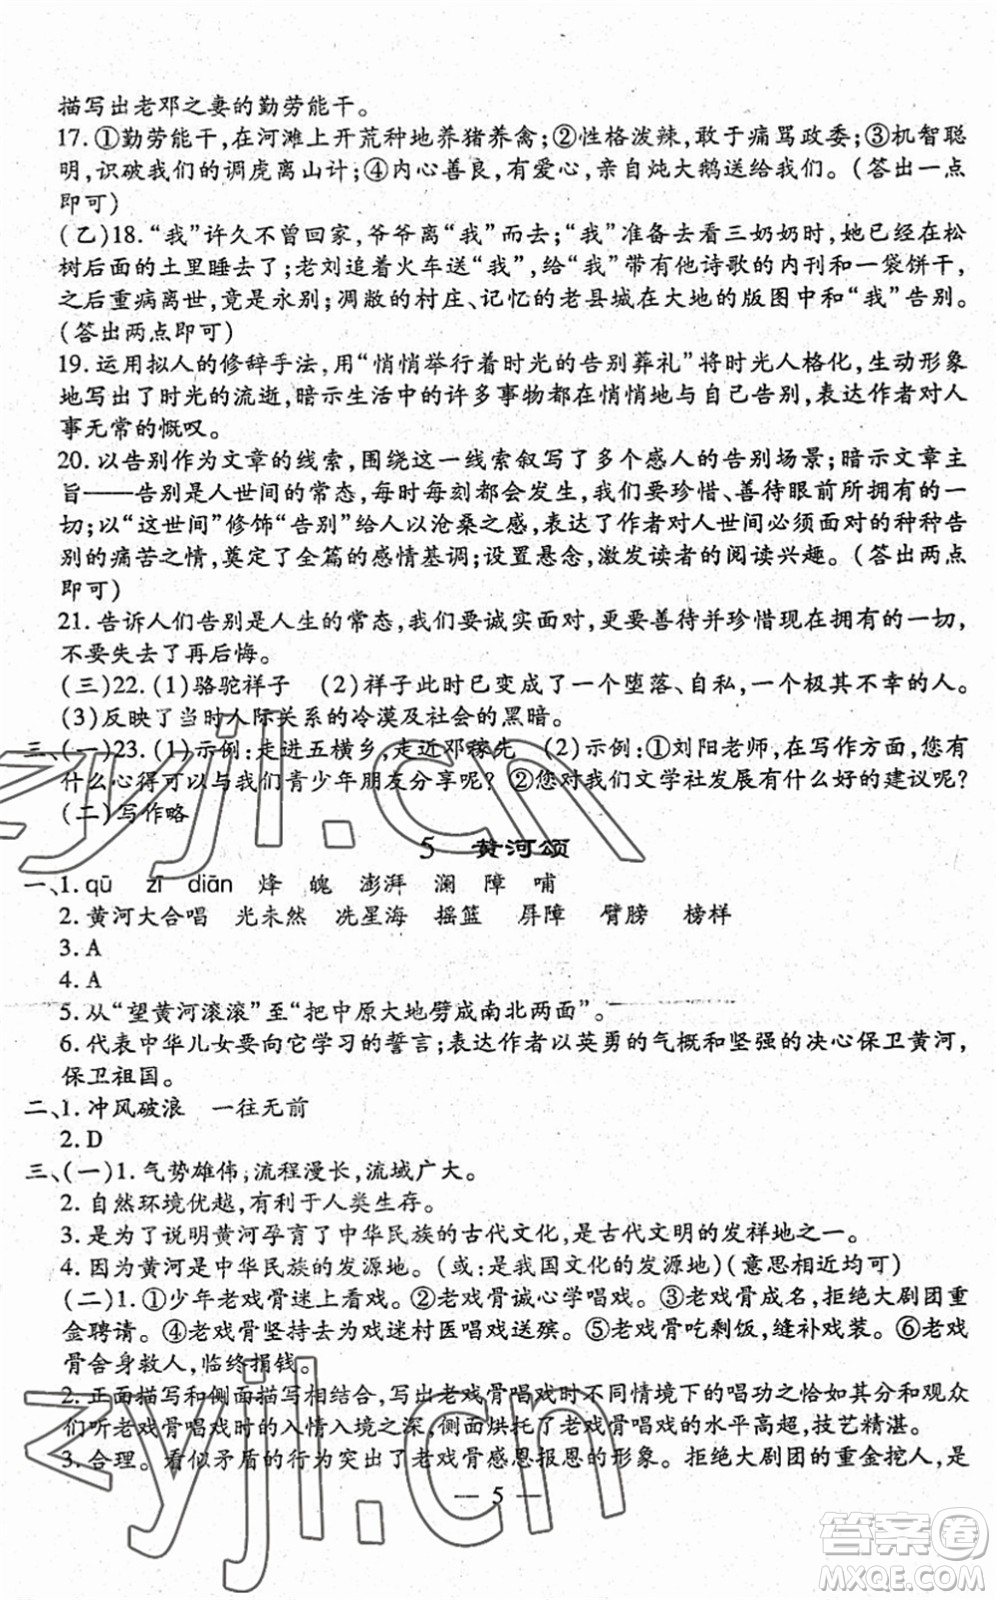 描写出老邓之妻的勤劳能干。
17.①勤劳能干,在河滩上开荒种地养猪养禽;②性格泼辣,敢于痛骂政委;③机智聪
明,识破我们的调虎离山计;④内心善良,有爱心,亲自炖大鹅送给我们。(答出一点
即可)
(乙)18.“我”许久不曾回家,爷爷离“我”而去;“我”准备去看三奶奶时,她已经在松
树后面的土里睡去了;老刘追着火车送“我”,给“我”带有他诗歌的内刊和一袋饼干,
之后重病离世,竟是永别;凋敝的村庄、记忆的老县城在大地的版图中和“我”告别。
(答出两点即可)
19.运用拟人的修辞手法,用“悄悄举行着时光的告别葬礼”将时光人格化,生动形象
地写出了时光的流逝,暗示生活中的许多事物都在悄悄地与自己告别,表达作者对人
事无常的慨叹。
20.以告别作为文章的线索,围绕这一线索叙写了多个感人的告别场景;暗示文章主
旨——告别是人世间的常态,每时每刻都会发生,我们要珍惜、善待眼前所拥有的一
切;以“这世间”修饰“告别”给人以沧桑之感,表达了作者对人世间必须面对的种种告
别的痛苦之情,奠定了全篇的感情基调;设置悬念,激发读者的阅读兴趣。(答出两点
即可)
21.告诉人们告别是人生的常态,我们要诚实面对,更要善待并珍惜现在拥有的一切,
不要失去了再后悔。
(三)22.(1)骆驼祥子 (2)祥子此时已变成了一个堕落、自私,一个极其不幸的人。
(3)反映了当时人际关系的冷漠及社会的黑暗。
三、(一)23.(1)示例:走进五横乡,走近邓稼先 (2)示例:①刘阳老师,在写作方面,您有
什么心得可以与我们青少年朋友分享呢?②您对我们文学社发展有什么好的建议呢?
(二)写作略
5 黄河颂
一、1.qū zī diān 烽 魄 澎湃 澜 障 哺
2.黄河大合唱 光未然 冼星海 摇篮 屏障 臂膀 榜样
3.A
4.A
5.从“望黄河滚滚”至“把中原大地劈成南北两面”。
6.代表中华儿女要向它学习的誓言;表达作者以英勇的气概和坚强的决心保卫黄河,
保卫祖国。
二、1.冲风破浪 一往无前
2.D
三、(一)1.气势雄伟;流程漫长,流域广大。
2.自然环境优越,有利于人类生存。
3.是为了说明黄河孕育了中华民族的古代文化,是古代文明的发祥地之一。
4.因为黄河是中华民族的发源地。(或:是我国文化的发源地)(意思相近均可)
(二)1.①少年老戏骨迷上看戏。②老戏骨诚心学唱戏。③老戏骨成名,拒绝大剧团重
金聘请。④老戏骨坚持去为戏迷村医唱戏送殡。⑤老戏骨吃剩饭,缝补戏装。⑥老戏
骨舍身救人,临终捐钱。
2.正面描写和侧面描写相结合,写出老戏骨唱戏时不同情境下的唱功之恰如其分和观众
们听老戏骨唱戏时的入情入境之深,侧面烘托了老戏骨唱戏的水平高超,技艺精湛。
3.合理。看似矛盾的行为突出了老戏骨感恩报恩的形象。拒绝大剧团的重金挖人,是
— 5 —
zyjl.cn
zyjl.cn
答案圈
MXQE.COM